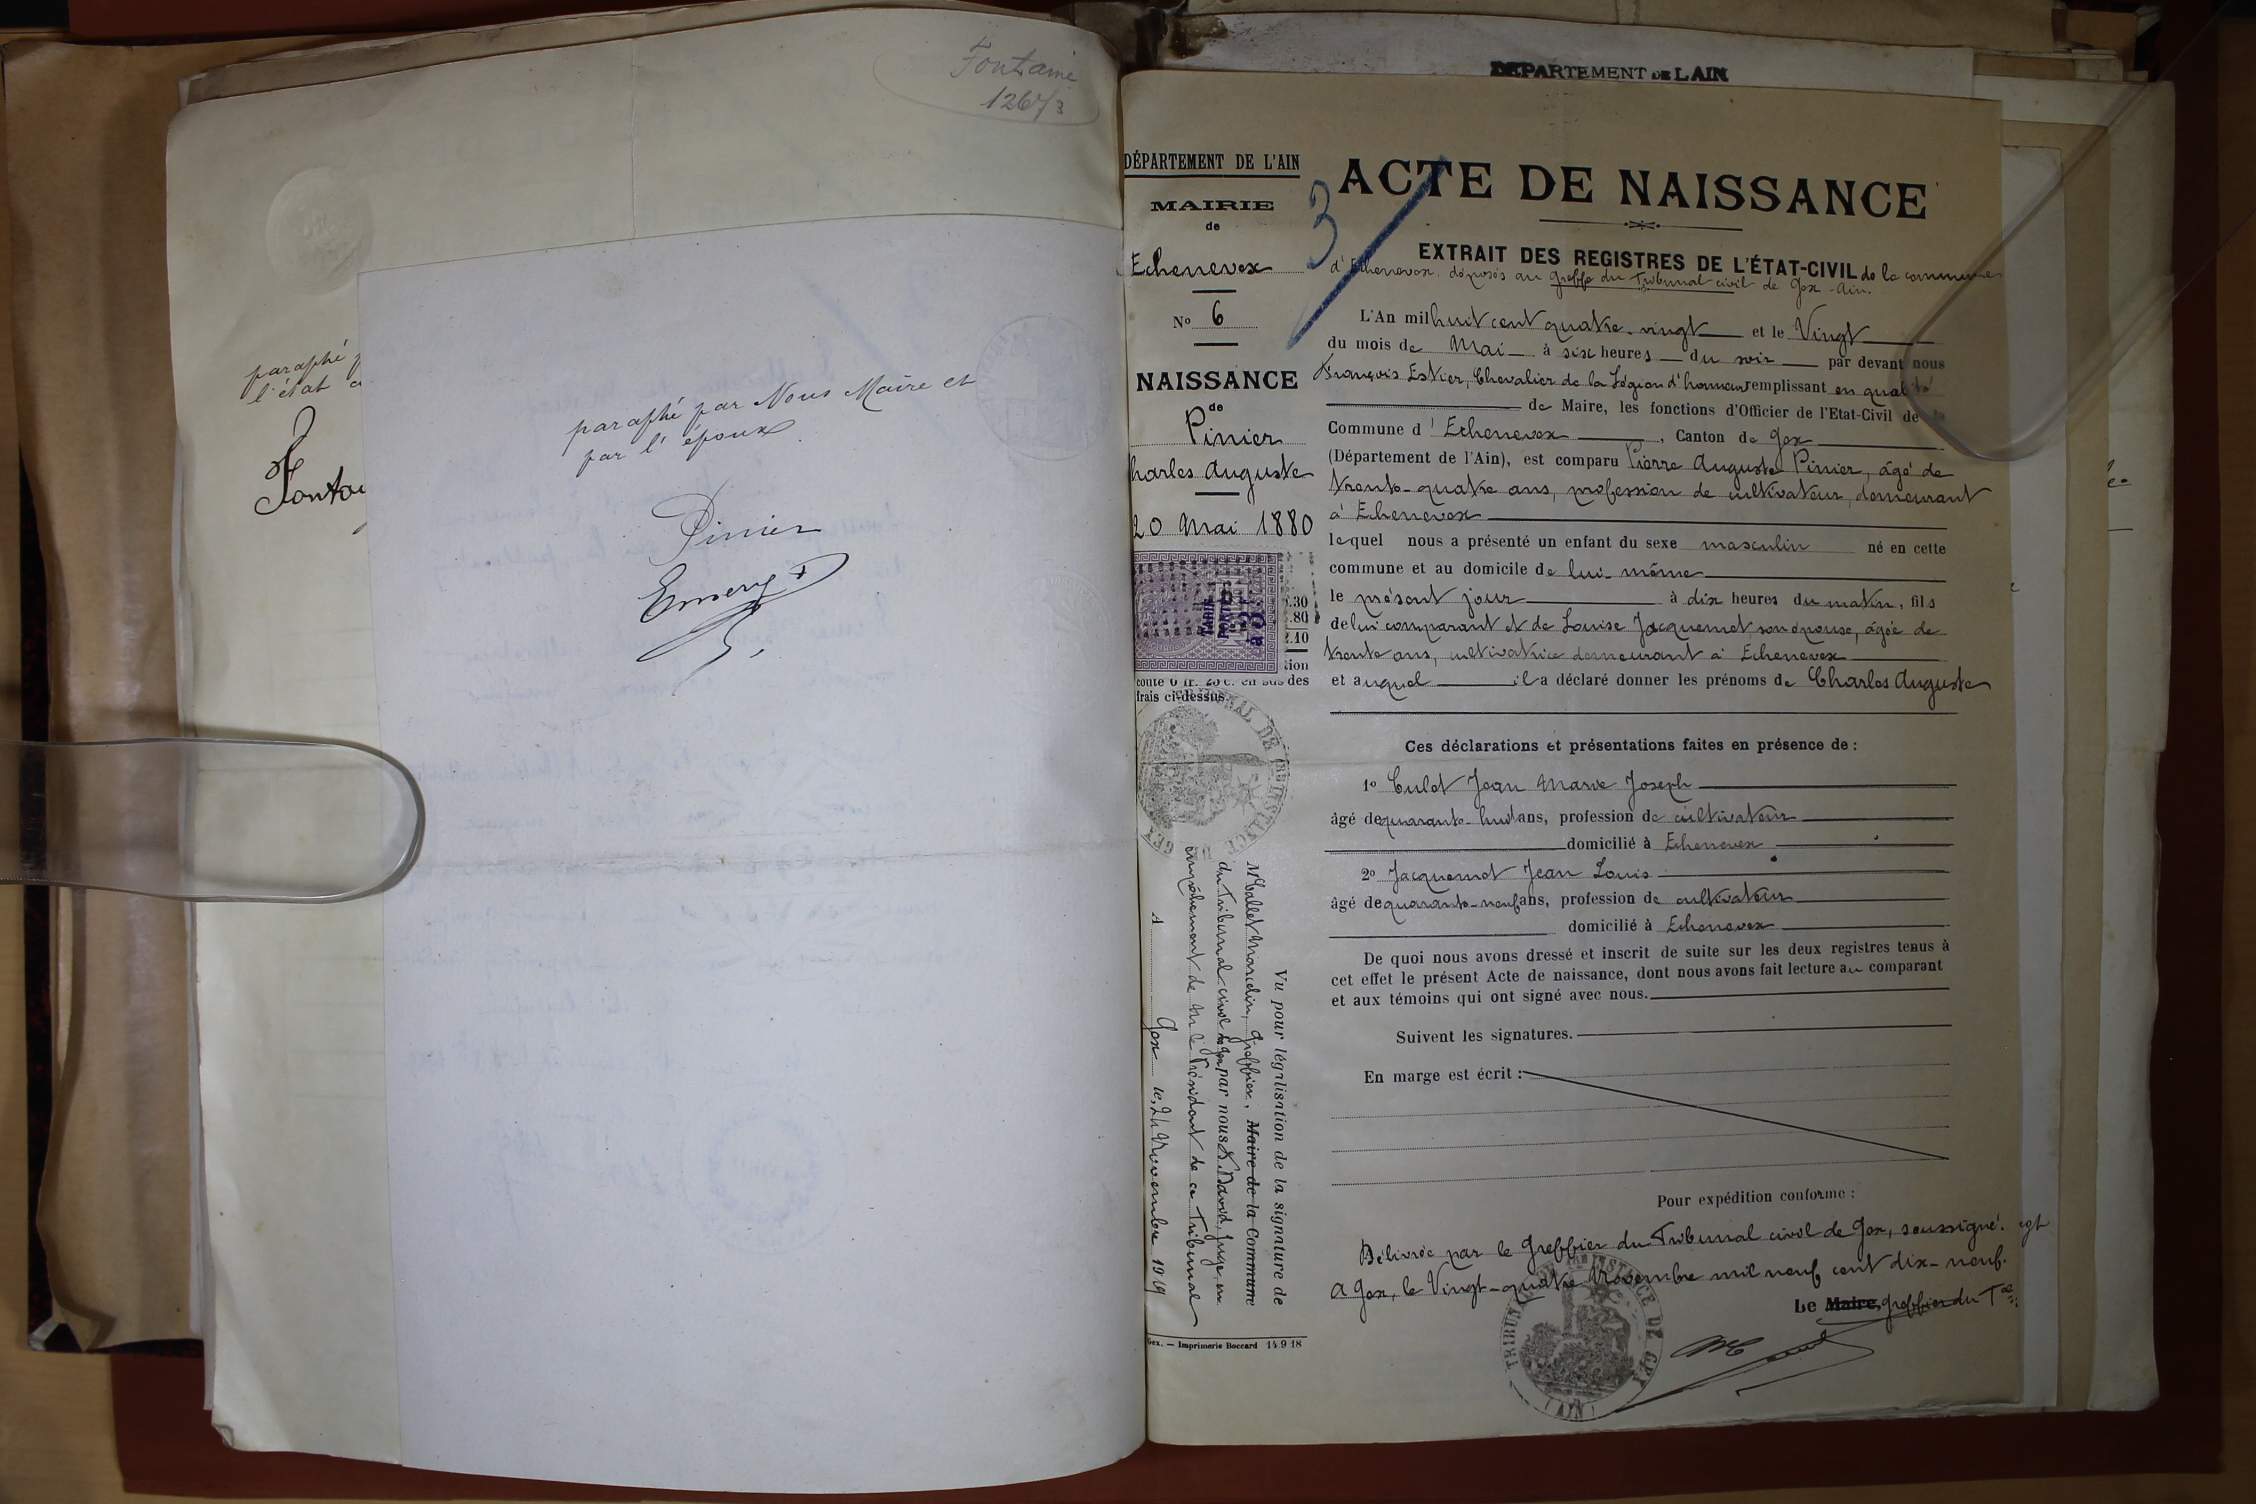 Fontaine
1267/3
paraphé
l'état
paraphé par Nous Maire et
par l'époux
Pinier
Emery
DEPARTEMENT DE L'AIN
DÉPARTEMENT DE L'AIN
MAIRIE
de
Echenevex
No 6
NAISSANCE
de
Pinier
Charles Auguste
20 Mai 1880
.30
.80
2.10
tion
coûte 0 fr. 25 c. en sus des
frais ci-dessus.
TRIBUNAL DE 1RE INSTANCE DE GEX
Vu pour légalisation de la signature de
Me Ballet Marcelin, Greffier, Maire de la Commune
du Tribunal civil de Gex par nous David, Juge, en
empêchement de Mr le Président de ce Tribunal
A Gex le, 24 Novembre 1919
Gex. — Imprimerie Boccard 14.9 18
3
ACTE DE NAISSANCE
EXTRAIT DES REGISTRES DE L'ÉTAT-CIVIL de la commune
d'Echenevex, déposés au Greffe du Tribunal civil de Gex - Ain.
L'An mil huit cent quatre-vingt et le Vingt
du mois de Mai à six heures du soir par devant nous
François Estier, Chevalier de la Légion d'honneur remplissant en qualité
de Maire, les fonctions d'Officier de l'Etat-Civil de la
Commune d'Echenevex, Canton de Gex
(Département de l'Ain), est comparu Pierre Auguste Pinier, âgé de
trente-quatre ans, profession de cultivateur, demeurant
à Echenevex
lequel nous a présenté un enfant du sexe masculin né en cette
commune et au domicile de lui-même
le présent jour à dix heures du matin, fils
de lui comparant et de Louise Jacquemet son épouse, âgée de
trente ans, cultivatrice demeurant à Echenevex
et auquel il a déclaré donner les prénoms de Charles Auguste
Ces déclarations et présentations faites en présence de :
1o Culet Jean Marie Joseph
âgé de quarante-huit ans, profession de cultivateur
domicilié à Echenevex
2o Jacquemet Jean Louis
âgé de quarante-neuf ans, profession de cultivateur
domicilié à Echenevex
De quoi nous avons dressé et inscrit de suite sur les deux registres tenus à
cet effet le présent Acte de naissance, dont nous avons fait lecture au comparant
et aux témoins qui ont signé avec nous.
Suivent les signatures.
En marge est écrit :
Pour expédition conforme :
Délivrée par le Greffier du Tribunal civil de Gex, soussigné.
A Gex, le Vingt-quatre Novembre mil neuf cent dix-neuf.
Le Maire, greffier du Tal
TRIBUNAL DE 1RE INSTANCE DE GEX
(AIN)